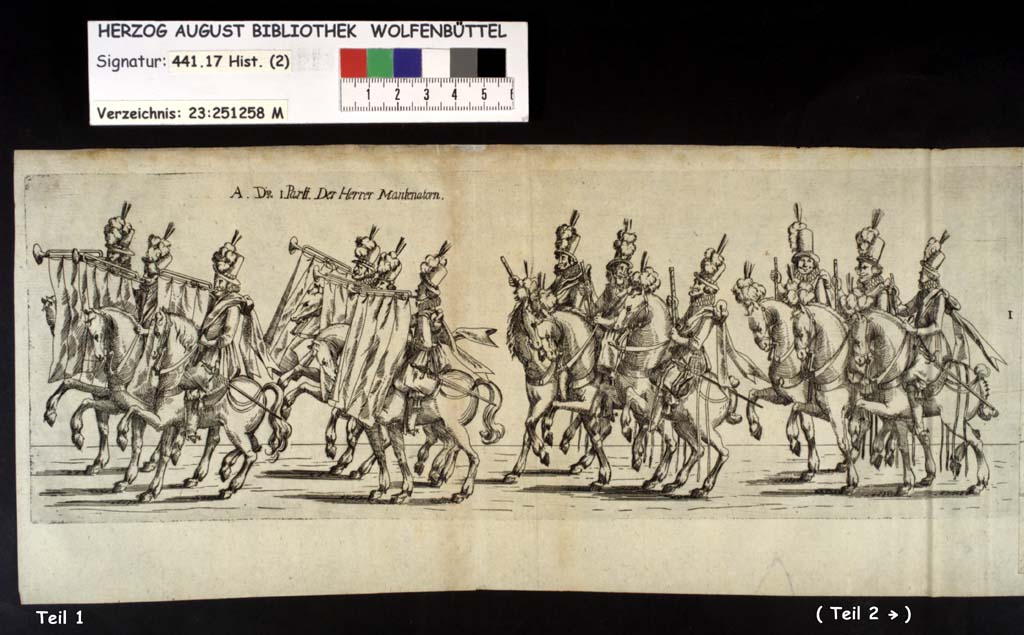 HERZOG AUGUST BIBLIOTHEK WOLFENBÜTTEL
Signatur: 441.17 Hist. (2)
1 2 3 4 5 6
Verzeichnis: 23:251258 M
A. Die 1 Parti. Der Herrer Mantenatorn.
1
Teil 1
( Teil 2 → )